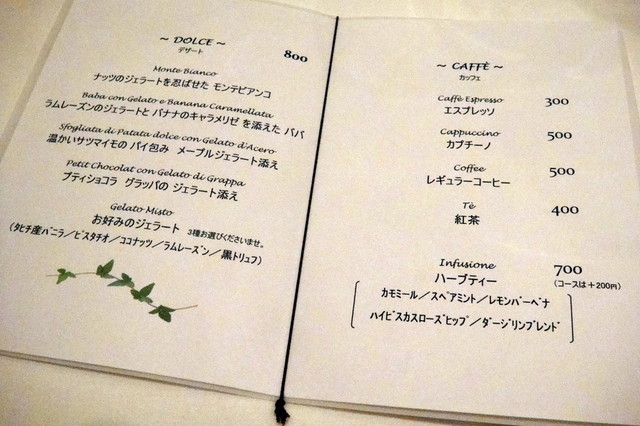 ~ DOLCE ~
デザート
800
Monte Bianco
ナッツのジェラートを忍ばせた モンテビアンコ
Baba con Gelato e Banana Caramellata
ラムレーズンのジェラートと バナナのキャラメリゼ を添えた ババ
Sfogliata di Patata dolce con Gelato d'Acero
温かいサツマイモの パイ包み メープルジェラート添え
Petit Chocolat con Gelato di Grappa
プティショコラ グラッパの ジェラート添え
Gelato Misto
お好みのジェラート 3種お選びくださいませ。
(タヒチ産バニラ／ピスタチオ／ココナッツ／ラムレーズン／黒トリュフ)
~ CAFFÈ ~
カッフェ
Caffè Espresso 300
エスプレッソ
Cappuccino 500
カプチーノ
Coffee 500
レギュラーコーヒー
Tè 400
紅茶
Infusione 700
ハーブティー (コースは＋200円)
カモミール／スペアミント／レモンバーベナ
ハイビスカスローズヒップ／ダージリンブレンド